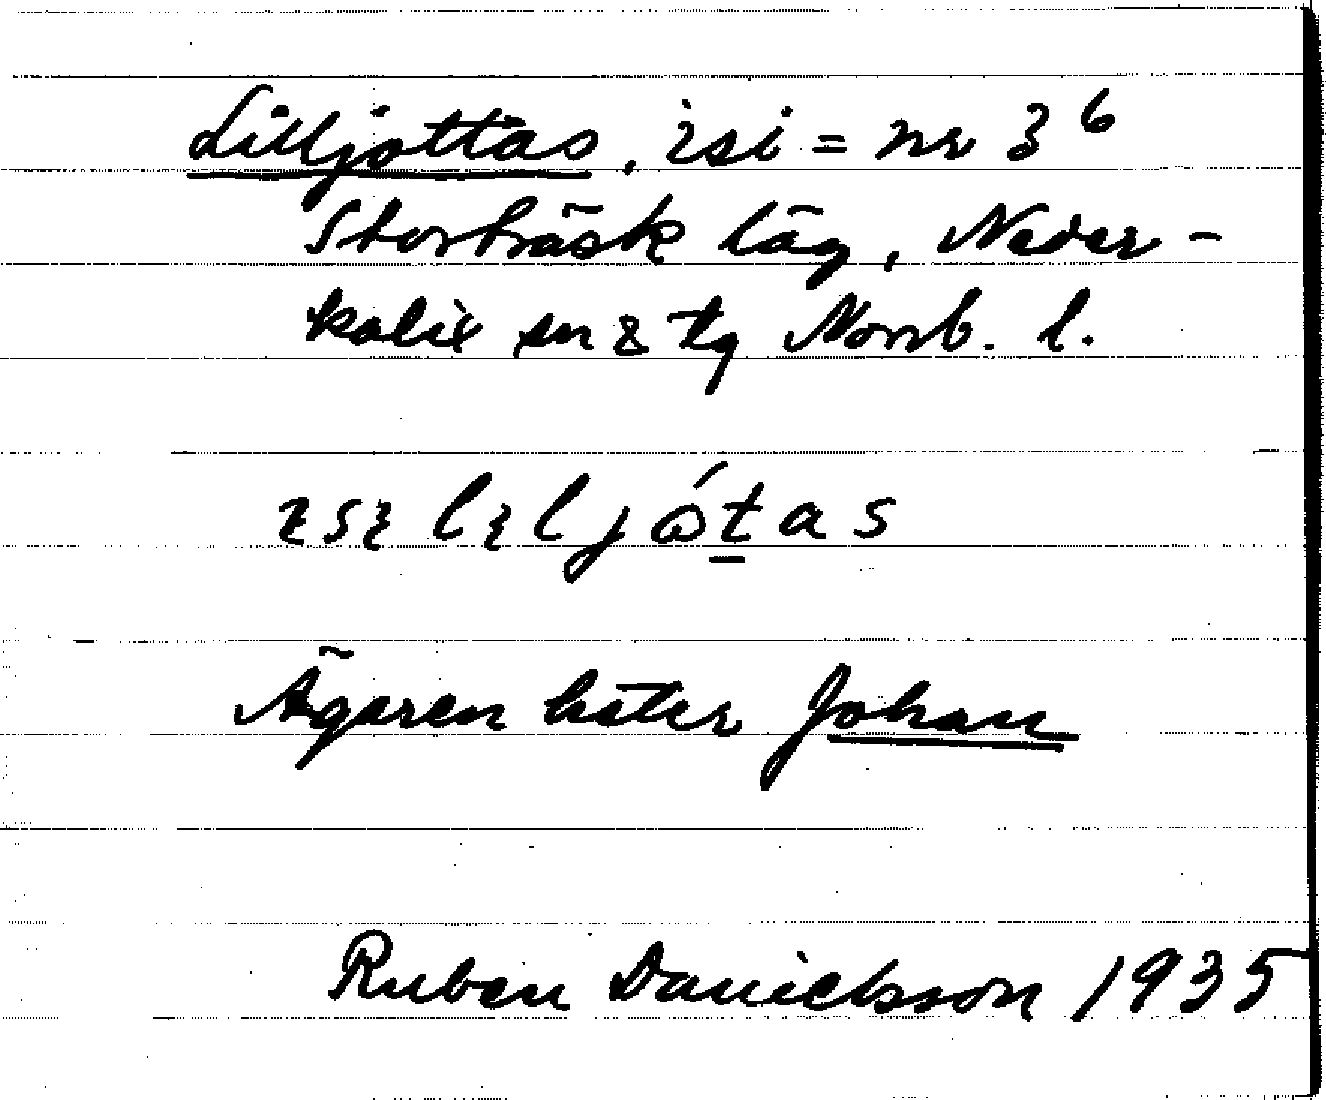 Lilljottas, isi = nr 3⁶
Storbräsk läg, Neder-
kalix sn & tg Norrb. l.
ısı lıljótas
Ägaren heter Johan
Ruben Danielsson 1935